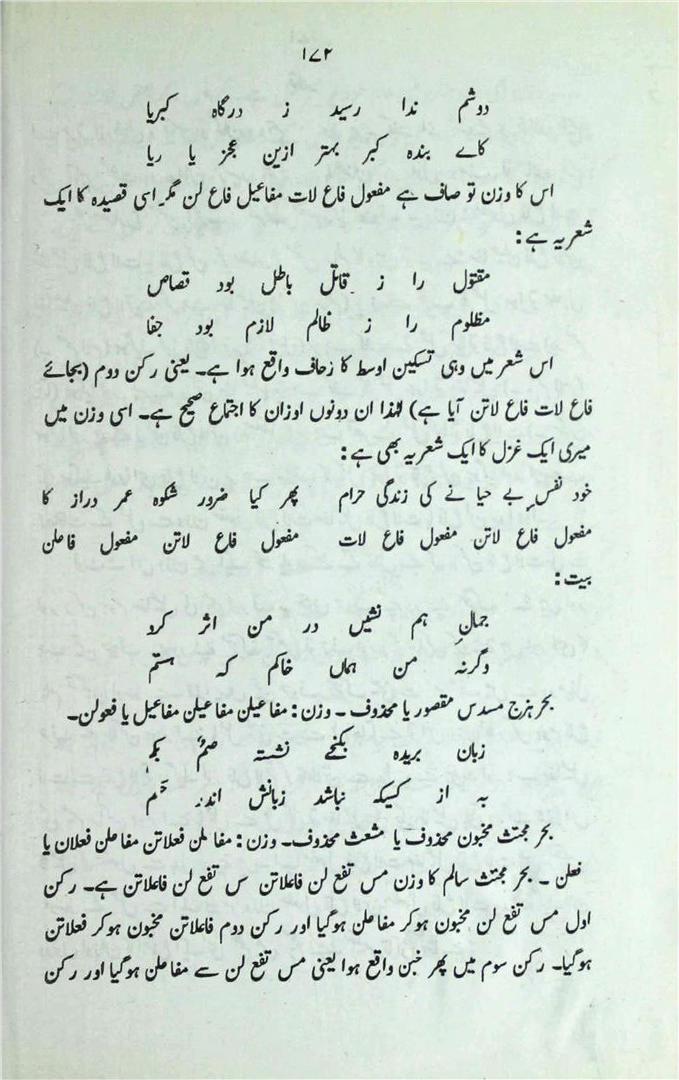 ۱۷۲
دوشم ندا رسید ز درگاہ کبریا
کاے بندہ کبر بہتر ازین عجز یا ریا
اس کا وزن تو صاف ہے مفعول فاع لات مفاعیل فاع لن مگر اسی قصیدہ کا ایک
شعر یہ ہے:
مقتول را ز قاتل باطل بود قصاص
مظلوم را ز ظالم لازم بود جفا
اس شعر میں وہی تسکین اوسط کا زحاف واقع ہوا ہے۔ یعنی رکن دوم (بجائے
فاع لات فاع لاتن آیا ہے) لہٰذا ان دونوں اوزان کا اجتماع صحیح ہے۔ اسی وزن میں
میری ایک غزل کا ایک شعر یہ بھی ہے:
خود نفسِ بے حیا نے کی زندگی حرام پھر کیا ضرور شکوہ عمر دراز کا
مفعول فاع لاتن مفعول فاع لات مفعول فاع لاتن مفعول فاعلن
بیت:
جمالِ ہم نشیں در من اثر کرد
وگرنہ من ہماں خاکم کہ ہستم
بحر ہزج مسدس مقصور یا محذوف۔ وزن: مفاعیلن مفاعیلن مفاعیل یا فعولن۔
زبان بریدہ بکنجے نشستہ صمٌ بکم
بہ از کسیکہ نباشد زبانش اندر حکم
بحر مجتث مخبون محذوف یا مشعث محذوف۔ وزن: مفاعلن فعلاتن مفاعلن فعلان یا
فعلن۔ بحر مجتث سالم کا وزن مس تفع لن فاعلاتن س تفع لن فاعلاتن ہے۔ رکن
اول مس تفع لن مخبون ہوکر مفاعلن ہوگیا اور رکن دوم فاعلاتن مخبون ہوکر فعلاتن
ہوگیا۔ رکن سوم میں پھر خبن واقع ہوا یعنی مس تفع لن سے مفاعلن ہوگیا اور رکن